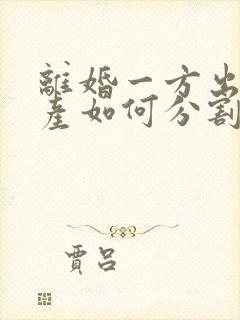 離婚一方出
產如何分割
賈呂